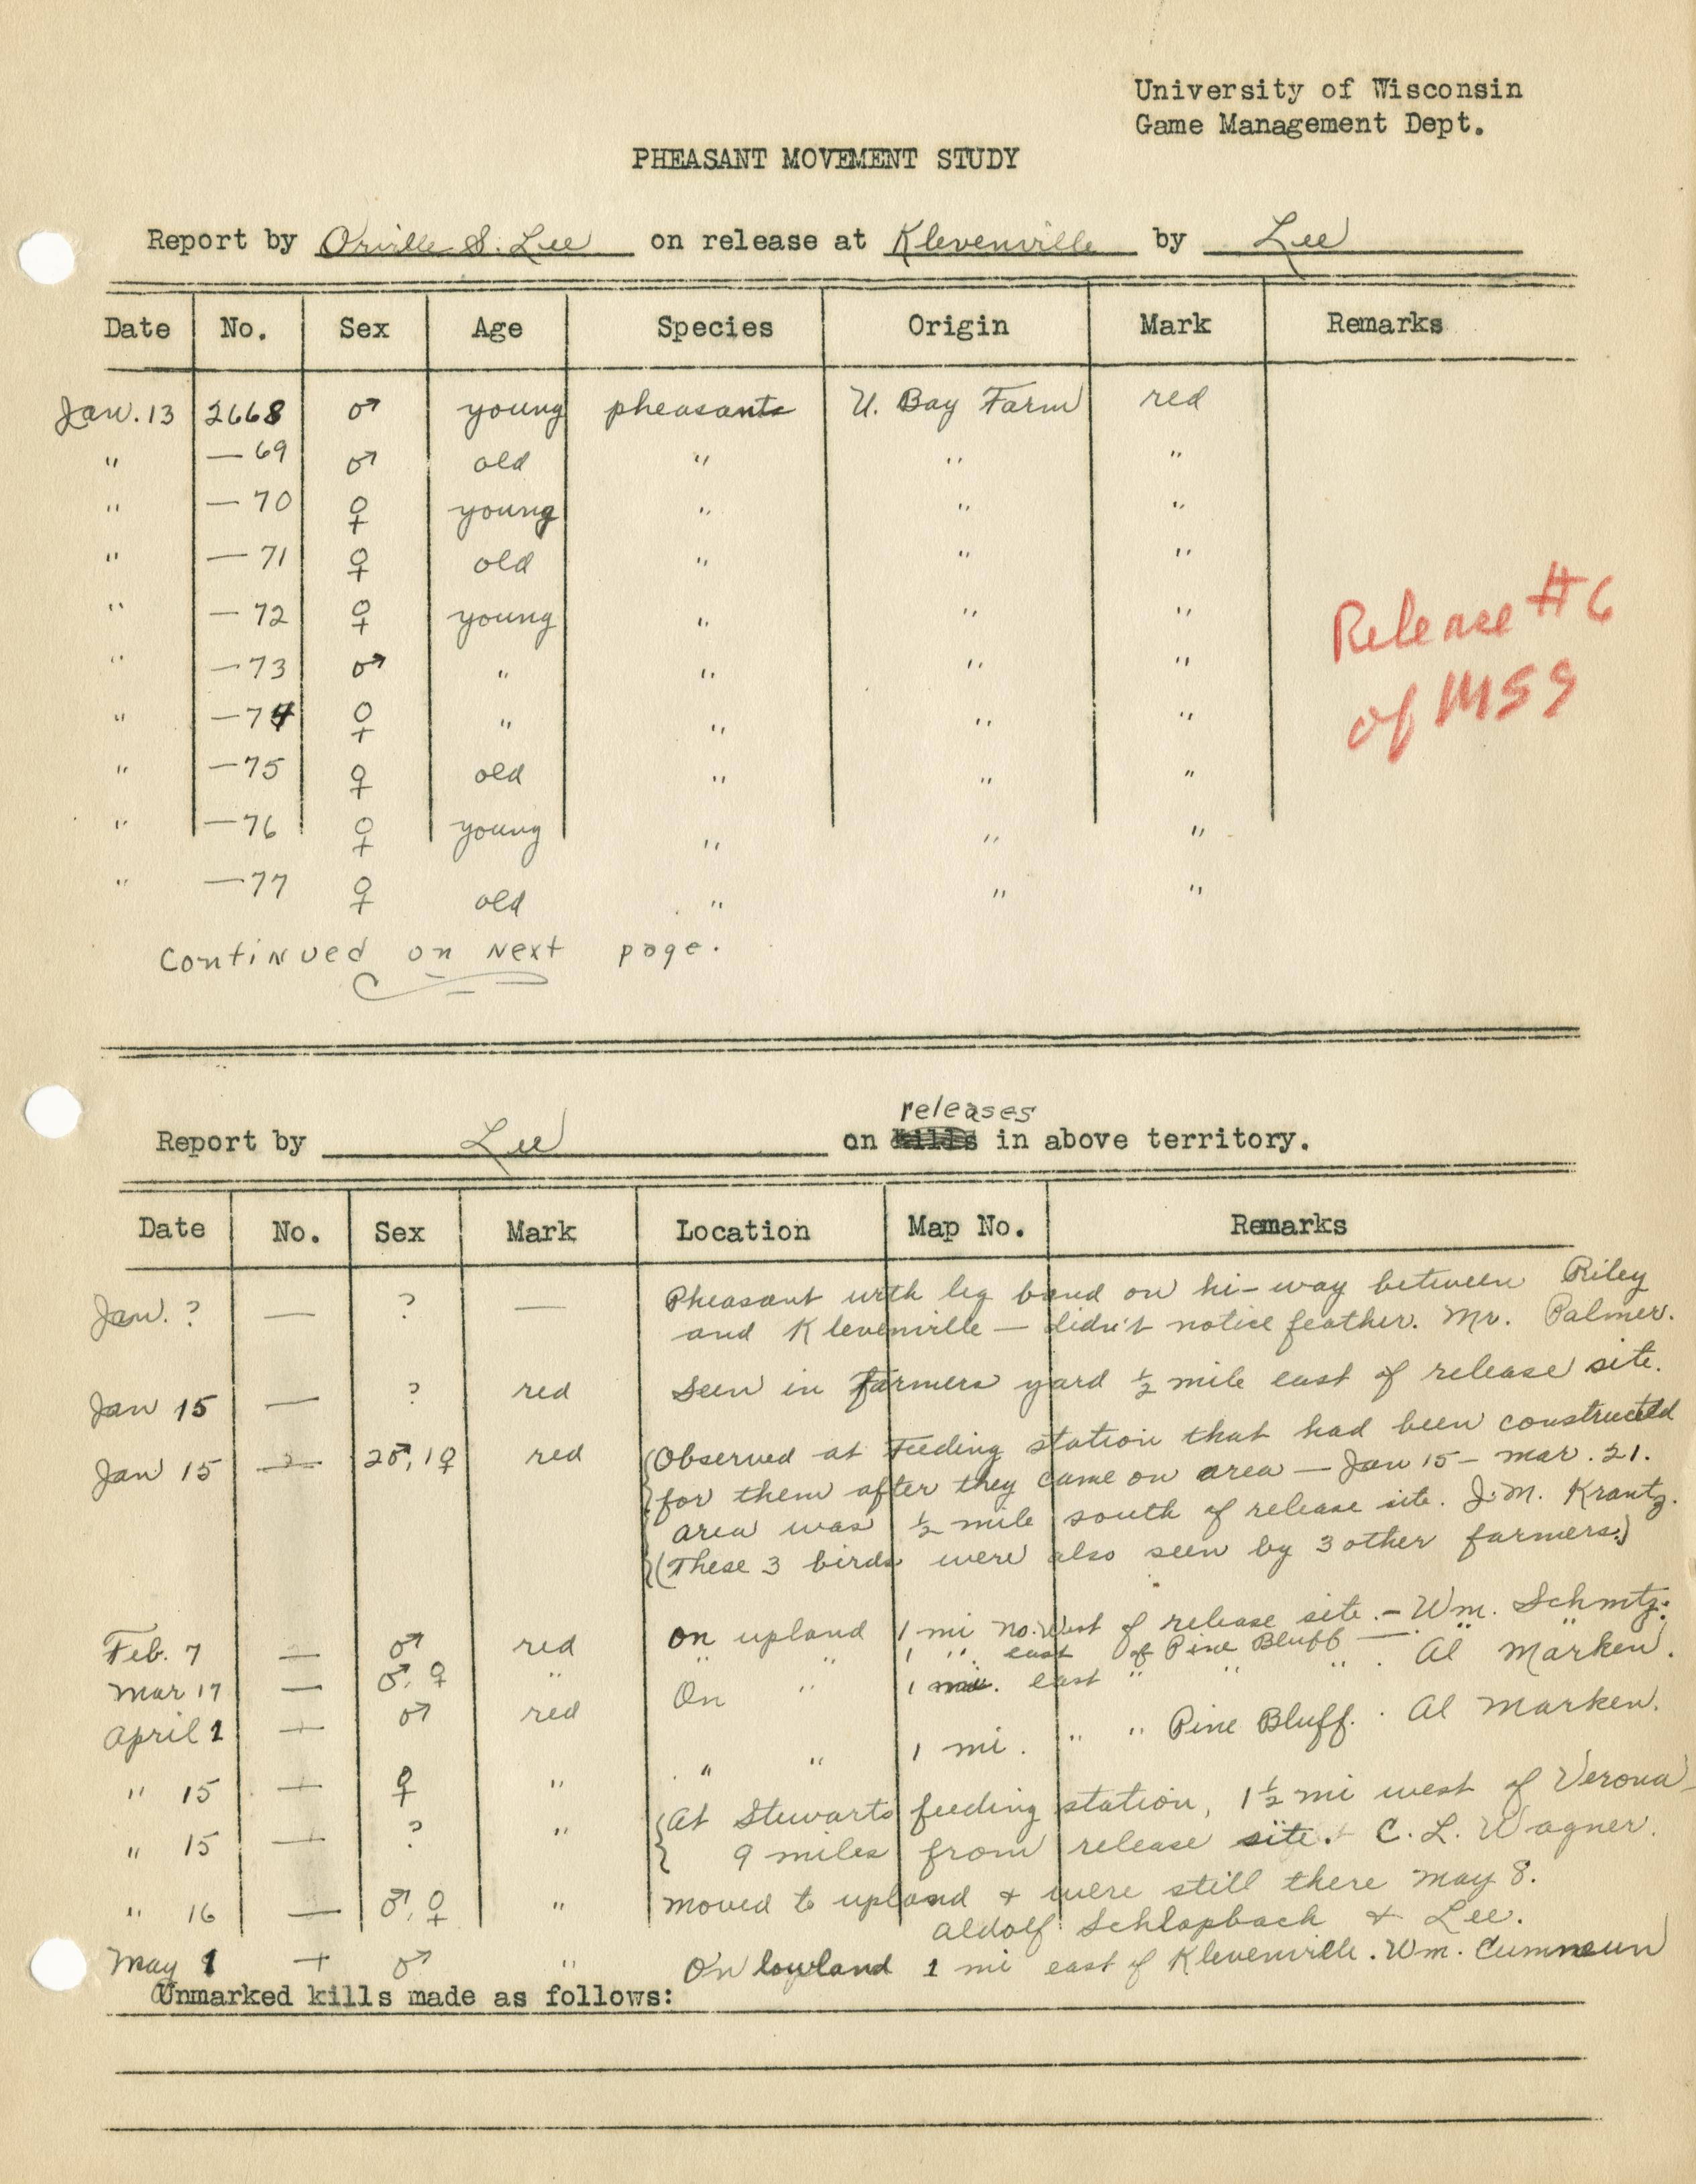 University of Wisconsin
Game Management Dept.
PHEASANT MOVEMENT STUDY
Report by Orville S. Lee on release at Klevenville by Lee
Date No. Sex Age Species Origin Mark Remarks
Jan. 13 2668 ♂ young pheasants U. Bay Farm red
" —69 ♂ old " " "
" —70 ♀ young " " "
" —71 ♀ old " " "
" —72 ♀ young " " "
" —73 ♂ " " " "
" —74 ♀ " " " "
" —75 ♀ old " " "
" —76 ♀ young " " "
" —77 ♀ old " " "
Release #6
of MSS
Continued on Next page.
releases
Report by Lee on kills in above territory.
Date No. Sex Mark Location Map No. Remarks
Jan. ? — ? — Pheasant with leg band on hi-way between Riley
and Klevenville — didn't notice feather. Mr. Palmer.
Jan 15 — ? red Seen in farmers yard ½ mile east of release site.
Jan 15 — 2♂, 1♀ red (Observed at Feeding station that had been constructed
for them after they came on area — Jan 15 - mar. 21.
area was ½ mile south of release site. J.M. Krantz.
(These 3 birds were also seen by 3 other farmers.)
Feb. 7 — ♂ red on upland 1 mi no. West of release site. - Wm. Schmtz.
" " 1 " east of Pine Bluff — " "
Mar 17 — ♂, ♀ " On " 1 mi. east " " " . Al Marken.
April 1 — ♂ red " " 1 mi. " " Pine Bluff. Al Marken.
" 15 — ♀ "
" 15 — ? " {At Stewarts feeding station, 1½ mi west of Verona
9 miles from release site. C. L. Wagner.
" 16 — ♂, ♀ " moved to upland & were still there May 8.
Aldolf Schlapbach & Lee.
May 1 — ♂ " On lowland 1 mi east of Klevenville. Wm. Cumneun
Unmarked kills made as follows: